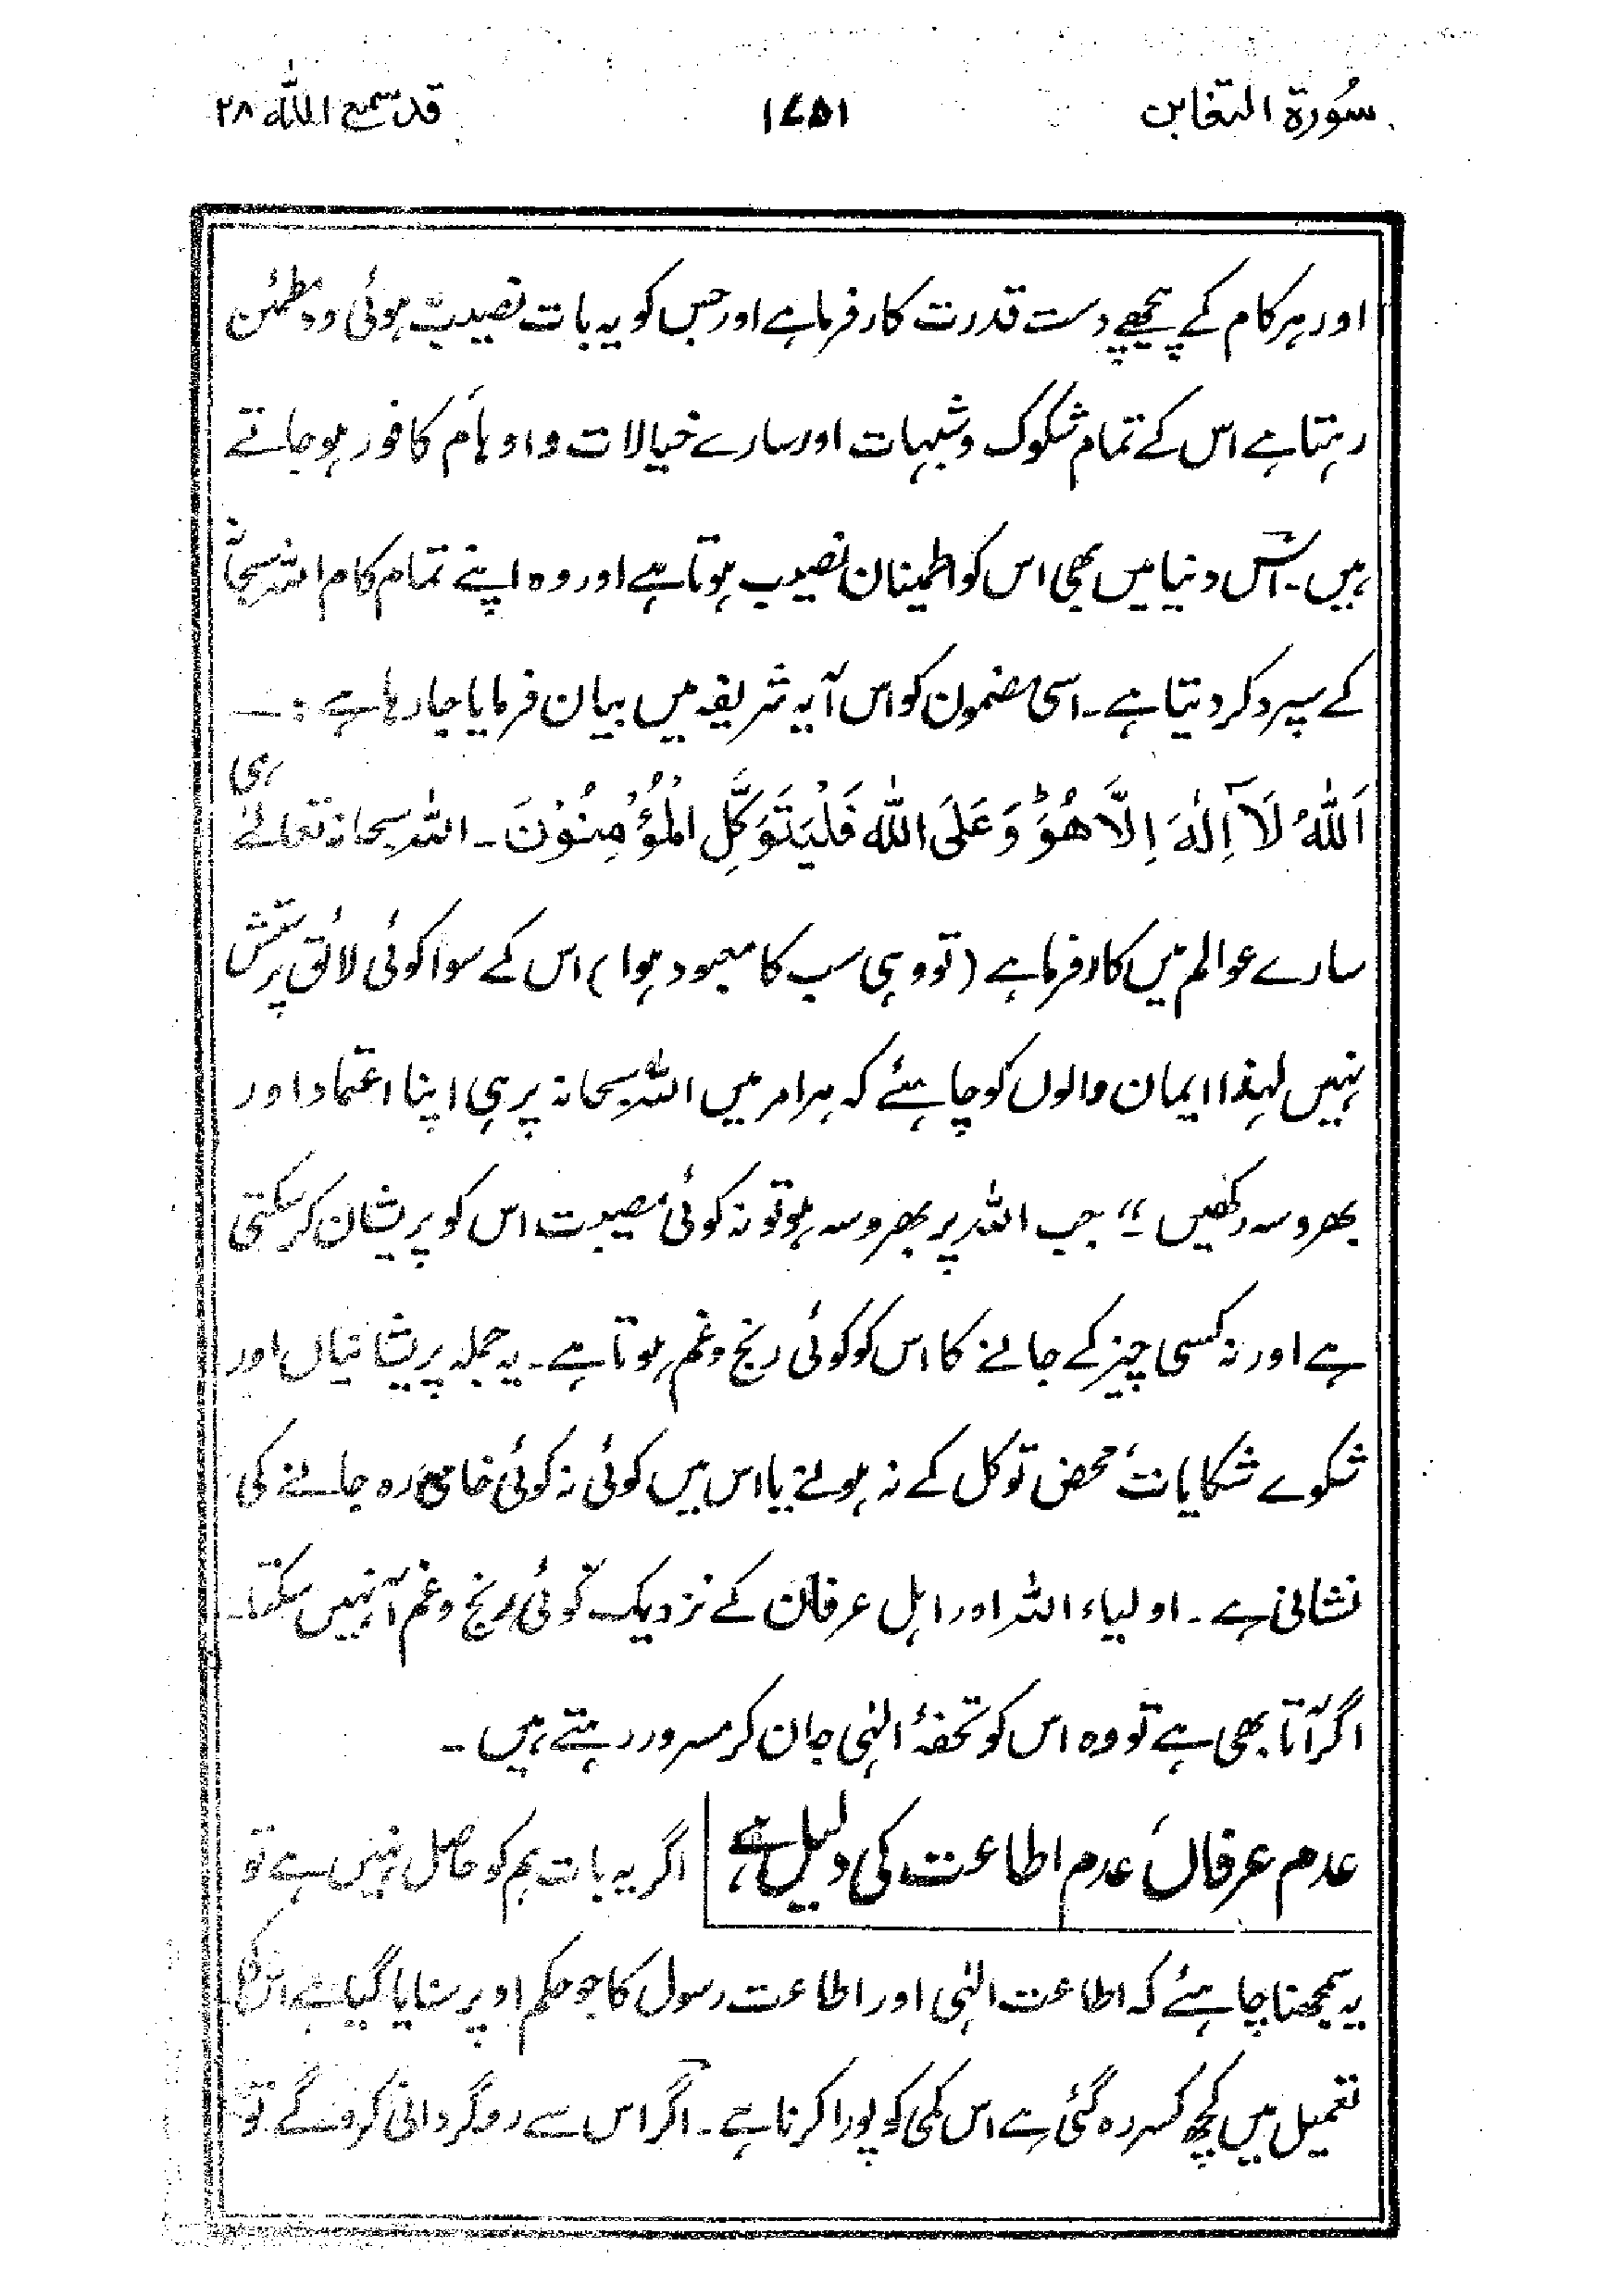 سُورة التغابن ۱۷۵۱ قد سمع اللہ ۲۸
اور ہر کام کے پیچھے دست قدرت کارفرما ہے اور جس کو یہ بات نصیب ہوئی وہ مطمئن
رہتا ہے اس کے تمام شکوک و شبہات اور سارے خیالات و اوہام کافور ہو جاتے
ہیں۔ اس دنیا میں بھی اس کو اطمینان نصیب ہوتا ہے اور وہ اپنے تمام کام اللہ سبحانہٗ
کے سپرد کر دیتا ہے۔ اسی مضمون کو اس آیہ شریفہ میں بیان فرمایا جا رہا ہے :۔
اَللّٰہُ لَآ اِلٰہَ اِلَّا ھُوَؕ وَعَلَی اللّٰہِ فَلْیَتَوَکَّلِ الْمُؤْمِنُوْنَ۔ اللہ سبحانہٗ تعالیٰ ہی
سارے عوالم میں کارفرما ہے (تو وہی سب کا معبود ہوا) اس کے سوا کوئی لائق پرستش
نہیں لہٰذا ایمان والوں کو چاہئے کہ ہر امر میں اللہ سبحانہ پر ہی اپنا اعتماد اور
بھروسہ رکھیں ؛؛ جب اللہ پر بھروسہ ہو تو نہ کوئی مصیبت اس کو پریشان کر سکتی
ہے اور نہ کسی چیز کے جانے کا اس کو کوئی رنج و غم ہوتا ہے۔ یہ جملہ پریشانیاں اور
شکوے شکایات محض توکل کے نہ ہونے یا اس میں کوئی نہ کوئی خامی رہ جانے کی
نشانی ہے۔ اولیاء اللہ اور اہل عرفان کے نزدیک کوئی رنج و غم آ نہیں سکتا۔
اگر آتا بھی ہے تو وہ اس کو تحفۂ الٰہی جان کر مسرور رہتے ہیں۔
عدم عرفاں عدم اطاعت کی دلیل ہے اگر یہ بات ہم کو حاصل نہیں ہے تو
یہ سمجھنا چاہئے کہ اطاعت الٰہی اور اطاعت رسول کا جو حکم اوپر سنایا گیا ہے اس کی
تعمیل میں کچھ کسر رہ گئی ہے اس کمی کو پورا کرنا ہے۔ اگر اس سے روگردانی کروگے تو